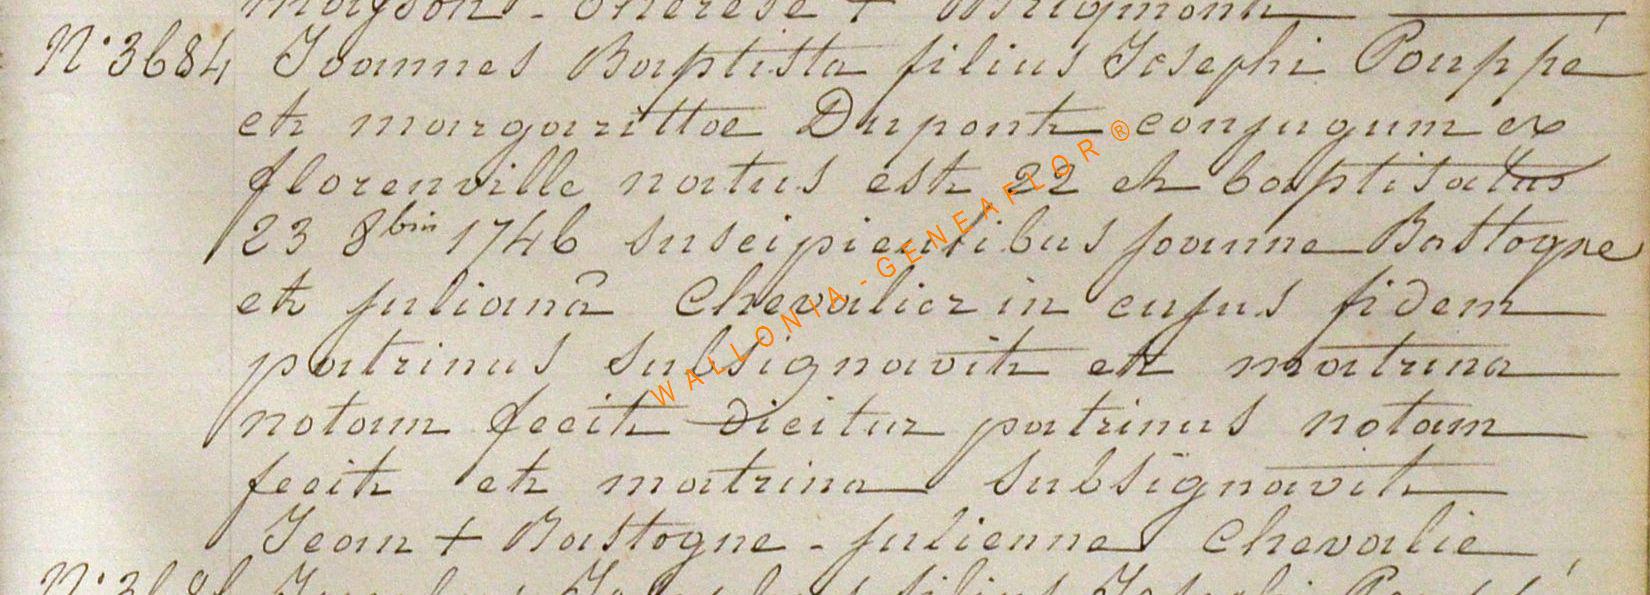 Thérèse +
N° 3684 Joannes Baptista filius Josephi Pouppé
et margarittae Dupont conjugum ex
florenville natus est 22 et baptisatus
23 8bris 1746 suscipientibus joanne Bastogne
et julianâ Chevalier in cujus fidem
patrinus subsignavit et matrina
notam fecit dicitur patrinus notam
fecit et matrina subsignavit
Jean + Bastogne - julienne Chevalie
filius Josephi
WALLONIA-GENEAFLOR ®